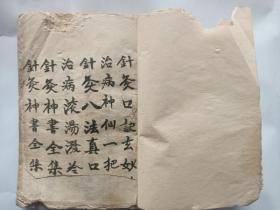 針灸口訣玄妙
治病神仙一把
針灸八法真口
治病滚湯潑冷
針灸神書全集
針灸神書全集